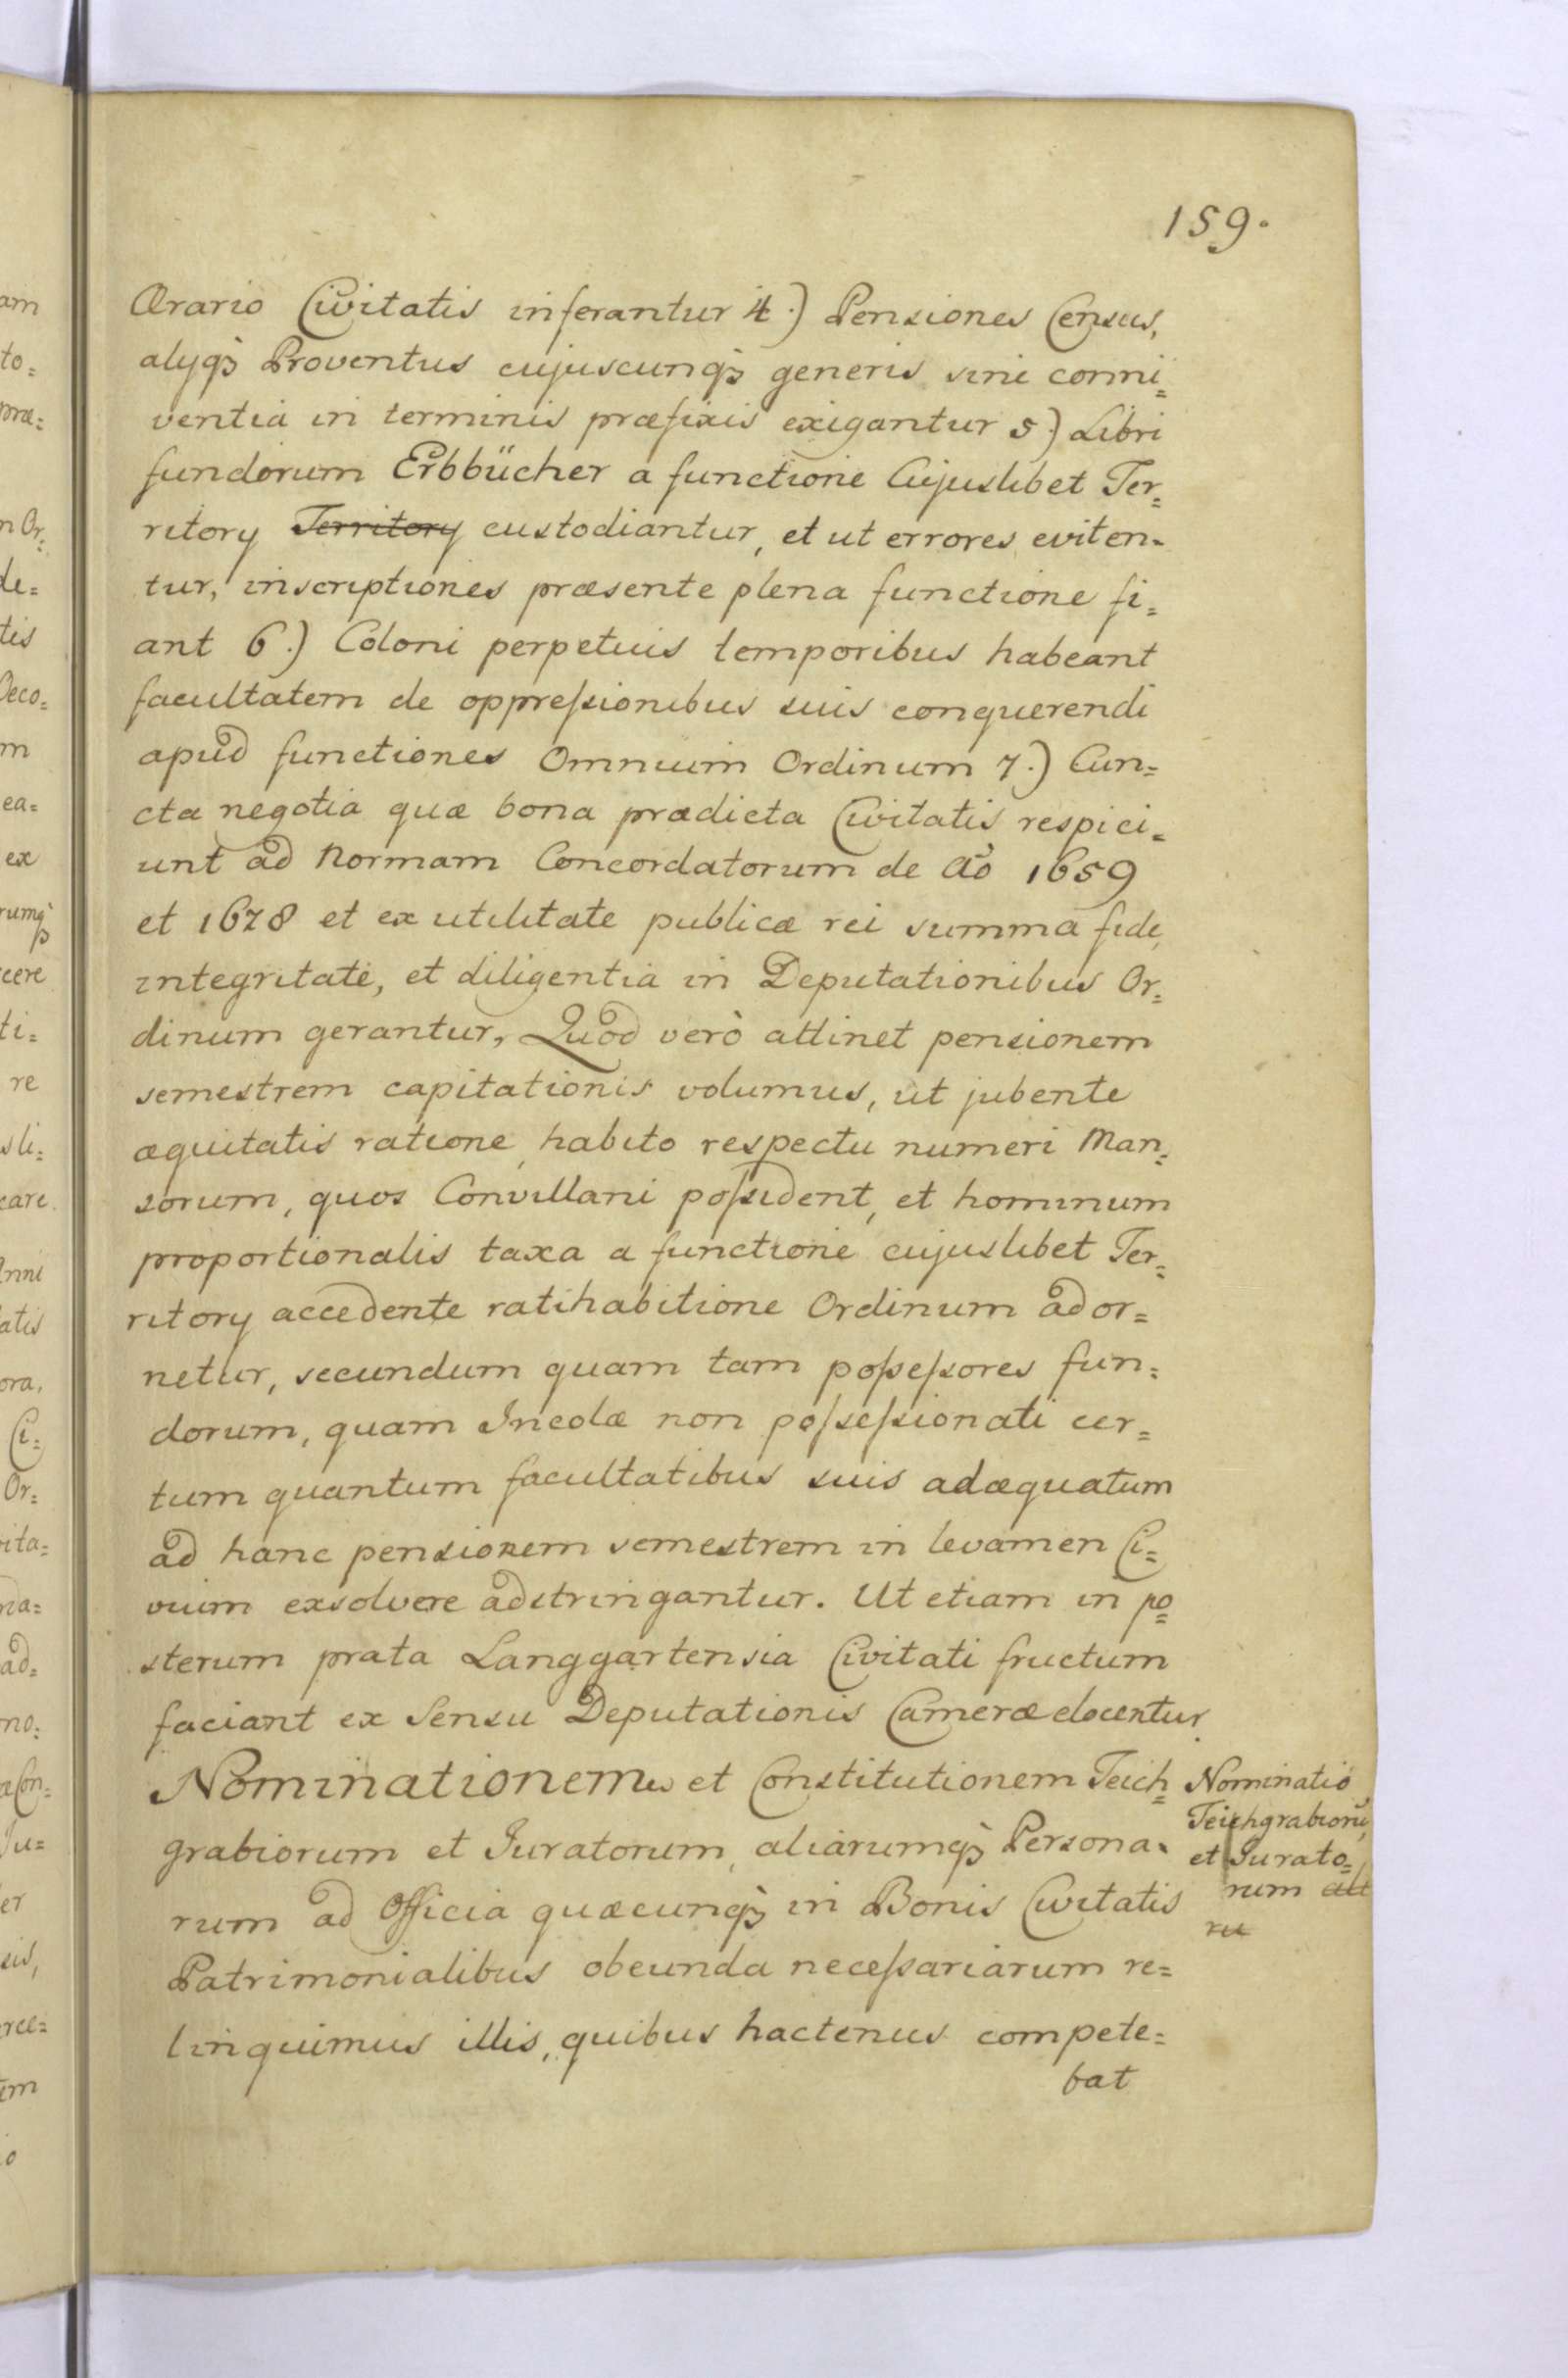 159.
Ærario Civitatis inferantur 4.) Pensiones Census,
alyq̃ Proventus cujuscunq̃ generis sine conni=
ventia in terminis præfixis exigantur 5.) Libri
fundorum Erbbücher a functione Cujuslibet Ter=
ritory Territory custodiantur, et ut errores eviten=
tur, inscriptiones præsente plena functione fi=
ant 6.) Coloni perpetuis temporibus habeant
facultatem de oppreſsionibus suis conquerendi
apud functiones Omnium Ordinum 7.) Cun=
cta negotia quæ bona prædicta Civitatis respici=
unt ad Normam Concordatorum de Aõ 1659
et 1678 et ex utilitate publicæ rei summa fide,
integritate, et diligentia in Deputationibus Or=
dinum gerantur, Quod verò attinet pensionem
semestrem capitationis volumus, ut jubente
æquitatis ratione, habito respectu numeri Man=
sorum, quos Convillani poſsident, et hominum
proportionalis taxa a functione cujuslibet Ter=
ritory accedente ratihabitione Ordinum ador=
netur, secundum quam tam poſseſsores fun=
dorum, quam Incolæ non poſseſsionati cer=
tum quantum facultatibus suis adæquatum
ad hanc pensionem semestrem in levamen Ci=
vium exsolvere adstringantur. Ut etiam in po=
sterum prata Langgartensia Civitati fructum
faciant ex Sensu Deputationis Cameræ elocentur.
Nominationem et Constitutionem Teich=
grabiorum et Juratorum, aliarumq̃ Persona=
rum ad Officia quæcunq̃ in Bonis Civitatis
Patrimonialibus obeunda neceſsariarum re=
linquimus illis, quibus hactenus compete=
bat
Nominatio
Teichgrabiorũ,
et Jurato=
rum